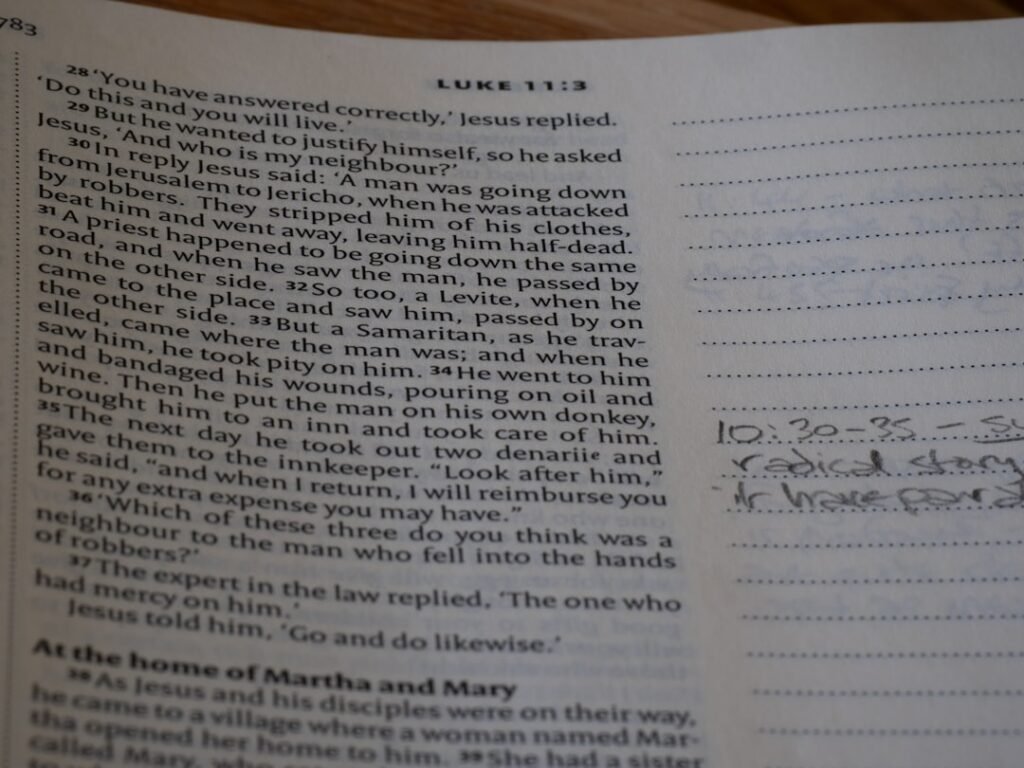 783
LUKE 11:3
28 ‘You have answered correctly,’ Jesus replied.
‘Do this and you will live.’
29 But he wanted to justify himself, so he asked
Jesus, ‘And who is my neighbour?’
30 In reply Jesus said: ‘A man was going down
from Jerusalem to Jericho, when he was attacked
by robbers. They stripped him of his clothes,
beat him and went away, leaving him half-dead.
31 A priest happened to be going down the same
road, and when he saw the man, he passed by
on the other side. 32 So too, a Levite, when he
came to the place and saw him, passed by on
the other side. 33 But a Samaritan, as he trav-
elled, came where the man was; and when he
saw him, he took pity on him. 34 He went to him
and bandaged his wounds, pouring on oil and
wine. Then he put the man on his own donkey,
brought him to an inn and took care of him.
35 The next day he took out two denarii e and
gave them to the innkeeper. “Look after him,”
he said, “and when I return, I will reimburse you
for any extra expense you may have.”
36 ‘Which of these three do you think was a
neighbour to the man who fell into the hands
of robbers?’
37 The expert in the law replied, ‘The one who
had mercy on him.’
Jesus told him, ‘Go and do likewise.’
At the home of Martha and Mary
38 As Jesus and his disciples were on their way,
he came to a village where a woman named Mar-
tha opened her home to him. 39 She had a sister
called Mary, who
10:30-35 -
radical story